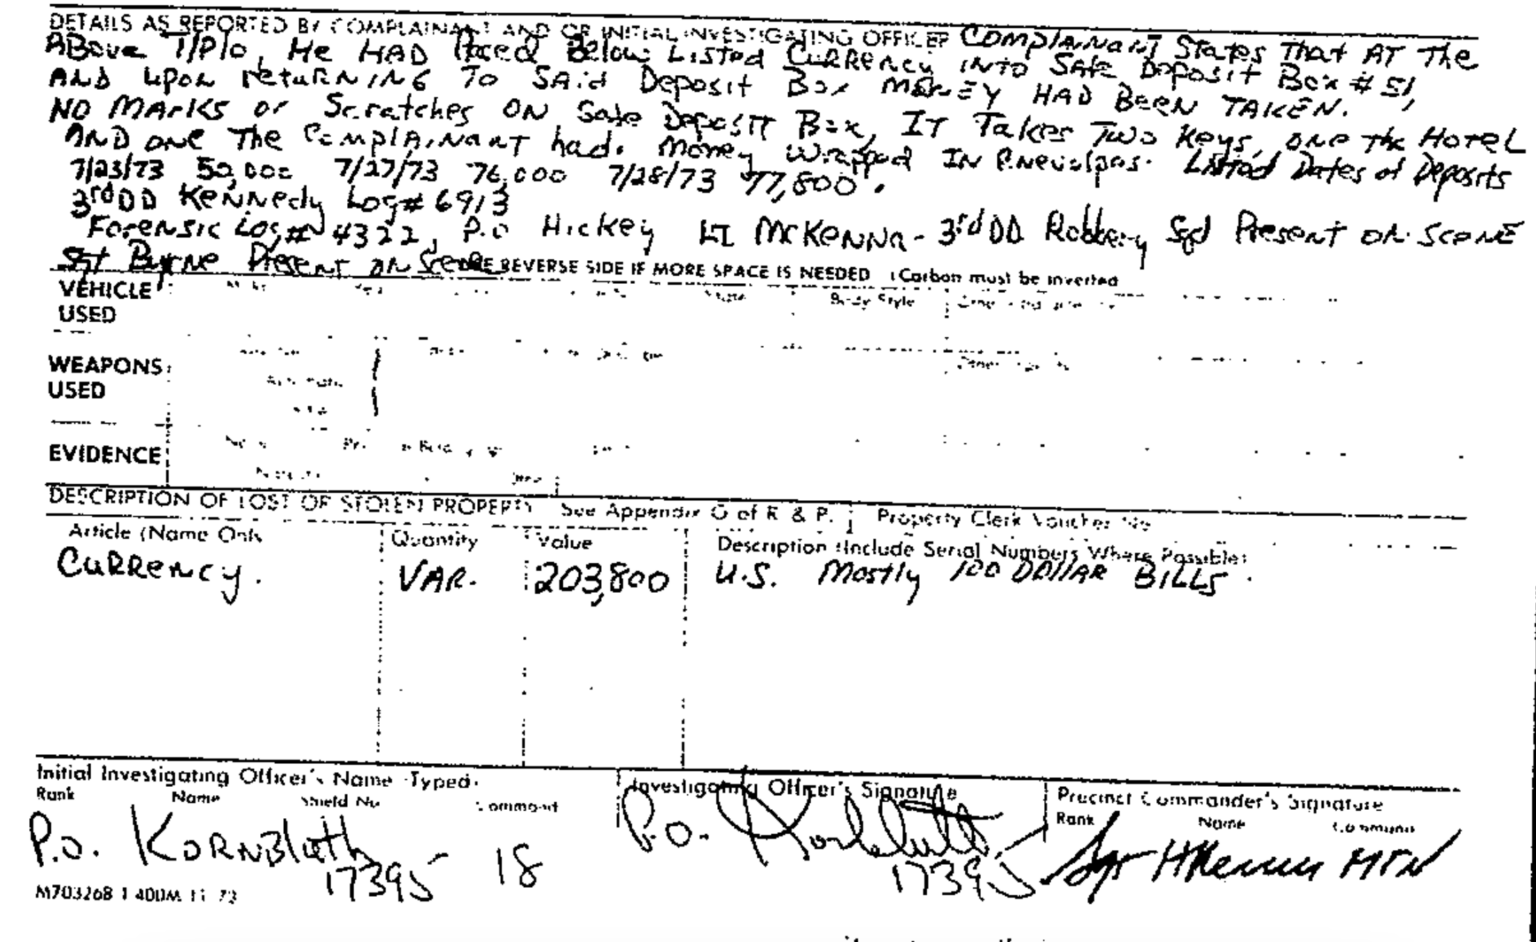 DETAILS AS REPORTED BY COMPLAINANT AND OR INITIAL INVESTIGATING OFFICER COMPLAINANT States That AT The
ABove T/P/o, He HAD Placed Below Listed CURRENCY INTO SAfe Deposit Box # 51,
AND upon returning To SAid Deposit Box MONEY HAD BEEN TAKEN.
NO MARKS or Scratches ON Safe Deposit Box, IT Takes Two Keys, one the HOTEL
AND one The ComplAinant had. Money wrapped IN Listed Dates of Deposits
7/23/73 50,000 7/27/73 76,000 7/28/73 77,800.
3rd DD Kennedy Log# 6913
Forensic Log# 4322, P.o Hickey LT McKenna - 3rd DD Robbery Sqd Present on Scene
Sgt Byrne Present on Scene REVERSE SIDE IF MORE SPACE IS NEEDED (Carbon must be inverted
VEHICLE USED
State Body Style
WEAPONS USED
EVIDENCE
DESCRIPTION OF LOST OR STOLEN PROPERTY See Appendix G of R & P. Property Clerk Voucher No
Article (Name Only Quantity Value Description (Include Serial Numbers Where Possible)
CURRency. VAR. 203,800 U.S. Mostly 100 DOllAR BILLS.
Initial Investigating Officer's Name Typed. Investigating Officer's Signature Precinct Commander's Signature
Rank Name Shield No Command Rank Name Command
P.O. KORNBluth 17395 18 P.O. Kornbluth 17395 Sgt MTN
M703268